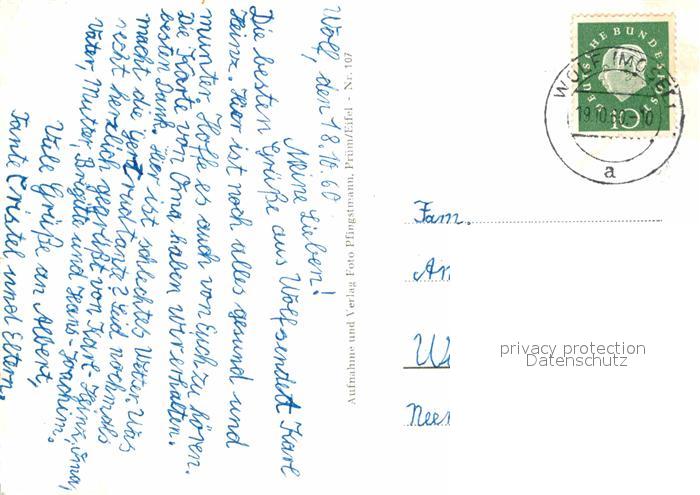 Wolf, den 18.10.60
Meine Lieben!
Die besten Grüße aus Wolf sendet Karl
Heinz. Hier ist noch alles gesund und
munter. Hoffe es auch von Euch zu hören.
Die Karte von Oma haben wir erhalten.
besten Dank. Hier ist schlechtes Wetter. Was
macht die Gertrud tante? Seid nochmals
recht herzlich gegrüßt von Karl Heinz, Oma,
Vater, Mutter, Brigitte und Hans-Joachim.
Viele Grüße an Albert,
Tante Kristel und Eltern.
Aufnahme und Verlag Foto Pfingstmann, Prüm/Eifel - Nr. 107
DEUTSCHE BUNDESPOST
10
WOLF (MOSEL)
19.10.60.-10
a
Fam.
An
W
Nees
privacy protection
Datenschutz